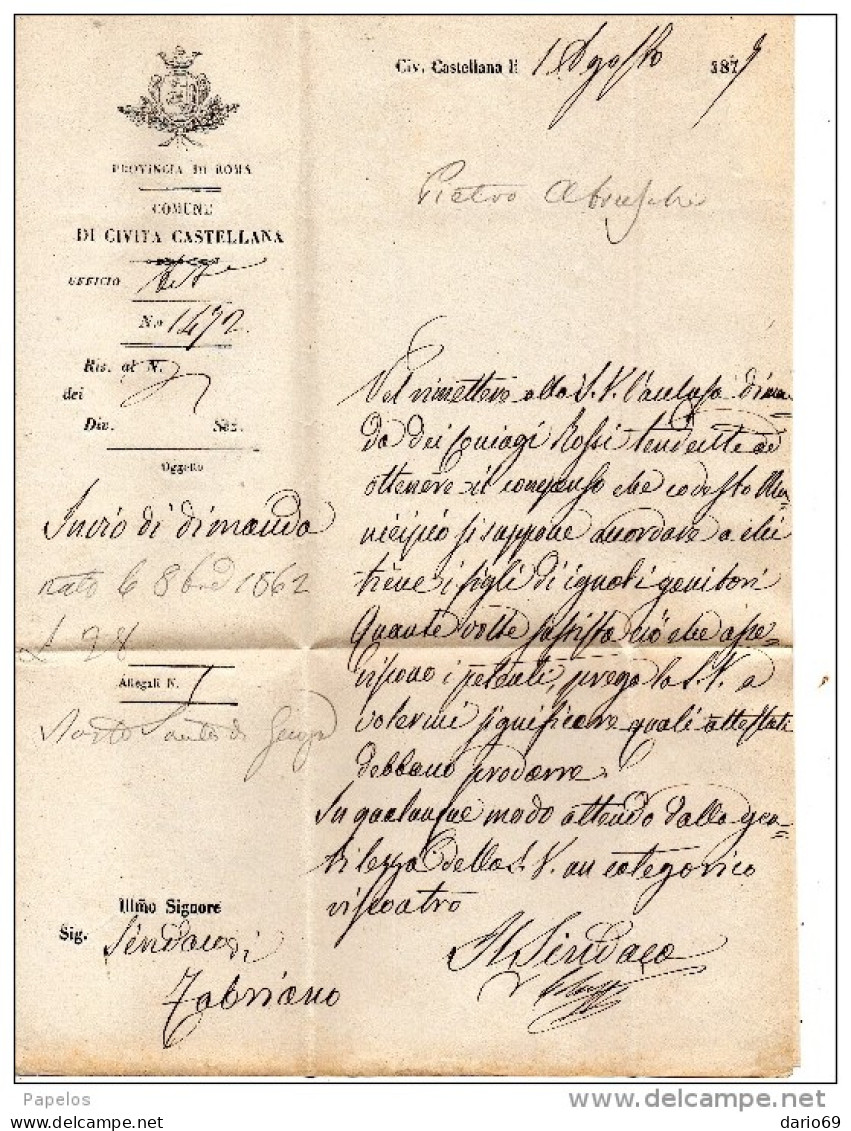 Civ. Castellana li 1 Agosto 1879
PROVINCIA DI ROMA
COMUNE
DI CIVITA CASTELLANA
UFFICIO
No 1472
Ris. al N.
dei
Div. Sez.
Oggetto
Invio di dimanda
nato 6 8bre 1862
Allegati N. 1
Pietro
Nel rimettere alla S. V. l'acclusa diman
da dei coniugi Rossi tendente ad
ottenere il compenso che codesto Mu=
nicipio si suppone accordare a chi
tiene i figli di ignoti genitori
Quante volte sussista ciò che asse=
riscono i petenti, prego la S. V. a
volermi significare quali attestati
debbano produrre.
In qualunque modo attendo dalla gen=
tilezza della S. V. un categorico
riscontro
Il Sindaco
Illmo Signore
Sig. Sindaco di
Fabriano
Papelos
www.delcampe.net
dario69